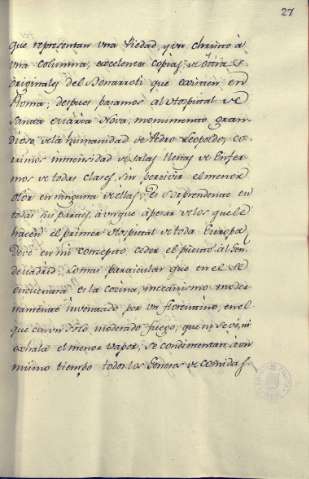 27
que representan una Piedad, y un christo à
una columna, excelentes copias, de otras
originales del Bonarroti que existen en
Roma; despues bajamos al Hospital de
Santa Maria Nova, monumento gran-
dioso de la humanidad de Pedro Leopoldo; co-
rrimos inmensidad de salas llenas de Enfer-
mos de todas clases, sin percivir el menor
olor en ninguna de ellas; Es sorprendente en
todas sus partes, aunque à pesar de los que le
hacen el primer Hospital de toda Europa
deve en mi concepto ceder el puesto al Gen.
de Madrid. Lo mas particular que en el se
encuentra es la cocina, mecanismo moder-
namente inventado por un florentino, en el
que con un solo moderado fuego, que ni se vé, ni
exhala el menor vapor, se condimentan à un
mismo tiempo todos los generos de comidas